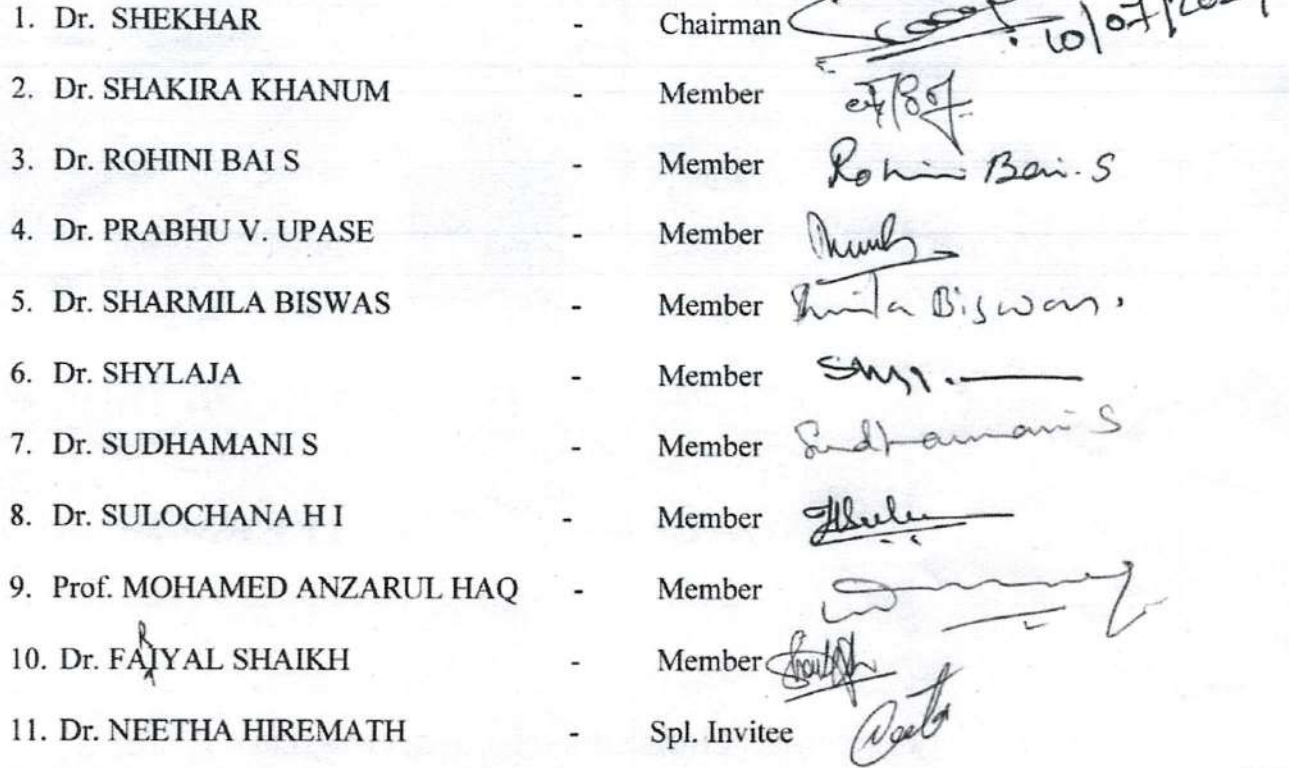 1. Dr. SHEKHAR - Chairman
2. Dr. SHAKIRA KHANUM - Member
3. Dr. ROHINI BAI S - Member Rohini Bai. S
4. Dr. PRABHU V. UPASE - Member
5. Dr. SHARMILA BISWAS - Member Biswas.
6. Dr. SHYLAJA - Member
7. Dr. SUDHAMANI S - Member Sudhamani S
8. Dr. SULOCHANA H I - Member
9. Prof. MOHAMED ANZARUL HAQ - Member
10. Dr. FAIYAL SHAIKH - Member
11. Dr. NEETHA HIREMATH - Spl. Invitee